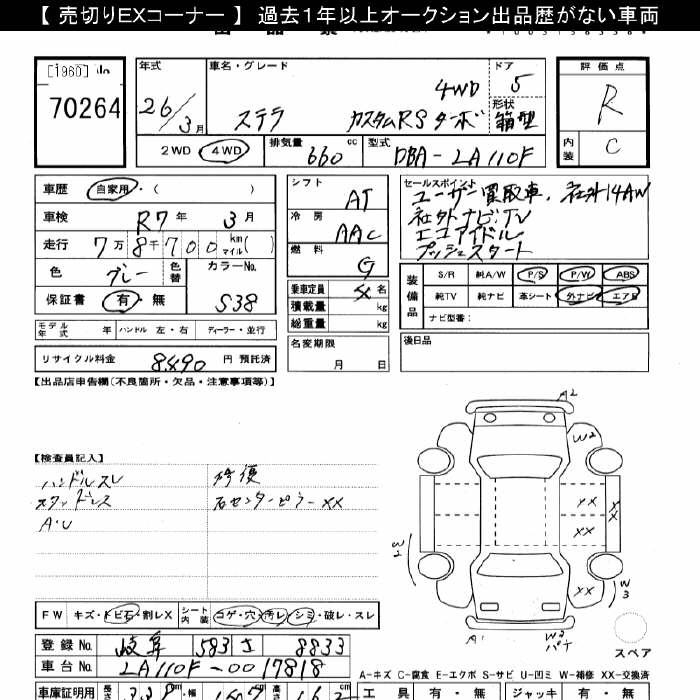 【 売切りEXコーナー 】 過去1年以上オークション出品歴がない車両
[1960]
70264
年式
26/3月
車名・グレード
ステラ カスタムRS ターボ 4WD
ドア
5
形状
箱型
評価点
R
内装
C
2WD ・ 4WD
排気量
660 cc
型式
DBA-LA110F
車歴 自家用・( )
車検 R7年 3月
走行 7万8千700 km マイル( )
色 グレー 色替
カラーNo. S38
保証書 有・無
モデル年式 年 ハンドル 左・右 ディーラー・並行
リサイクル料金 8490 円 預託済
シフト AT
冷房 AAC
燃料 G
乗車定員 4 名
積載量 kg
総重量 kg
名変期限
月 日
セールスポイント
ユーザー買取車、社外14AW
社外ナビ、TV
エコアイドル
プッシュスタート
装備品
S/R 純A/W P/S P/W ABS
純TV 純ナビ 革シート 外ナビ エアB
ナビ型番：
後日品
【出品店申告欄(不良箇所・欠品・注意事項等)】
【検査員記入】
ハンドルスレ
スタッドレス
A・U
修復
右センターピラーXX
A2
W2
XX
XX
XX
XX
W2
W3
A1
W3
パテ
スペア
FW キズ・トビ石・割レX シート内装 コゲ・穴・汚レ・シミ・破レ・スレ
登録No. 岐阜 583 さ 8833
車台No. LA110F-0017818
A-キズ C-腐食 E-エクボ S-サビ U-凹ミ W-補修 XX-交換済
車庫証明用
工具 有・無 ジャッキ 有・無